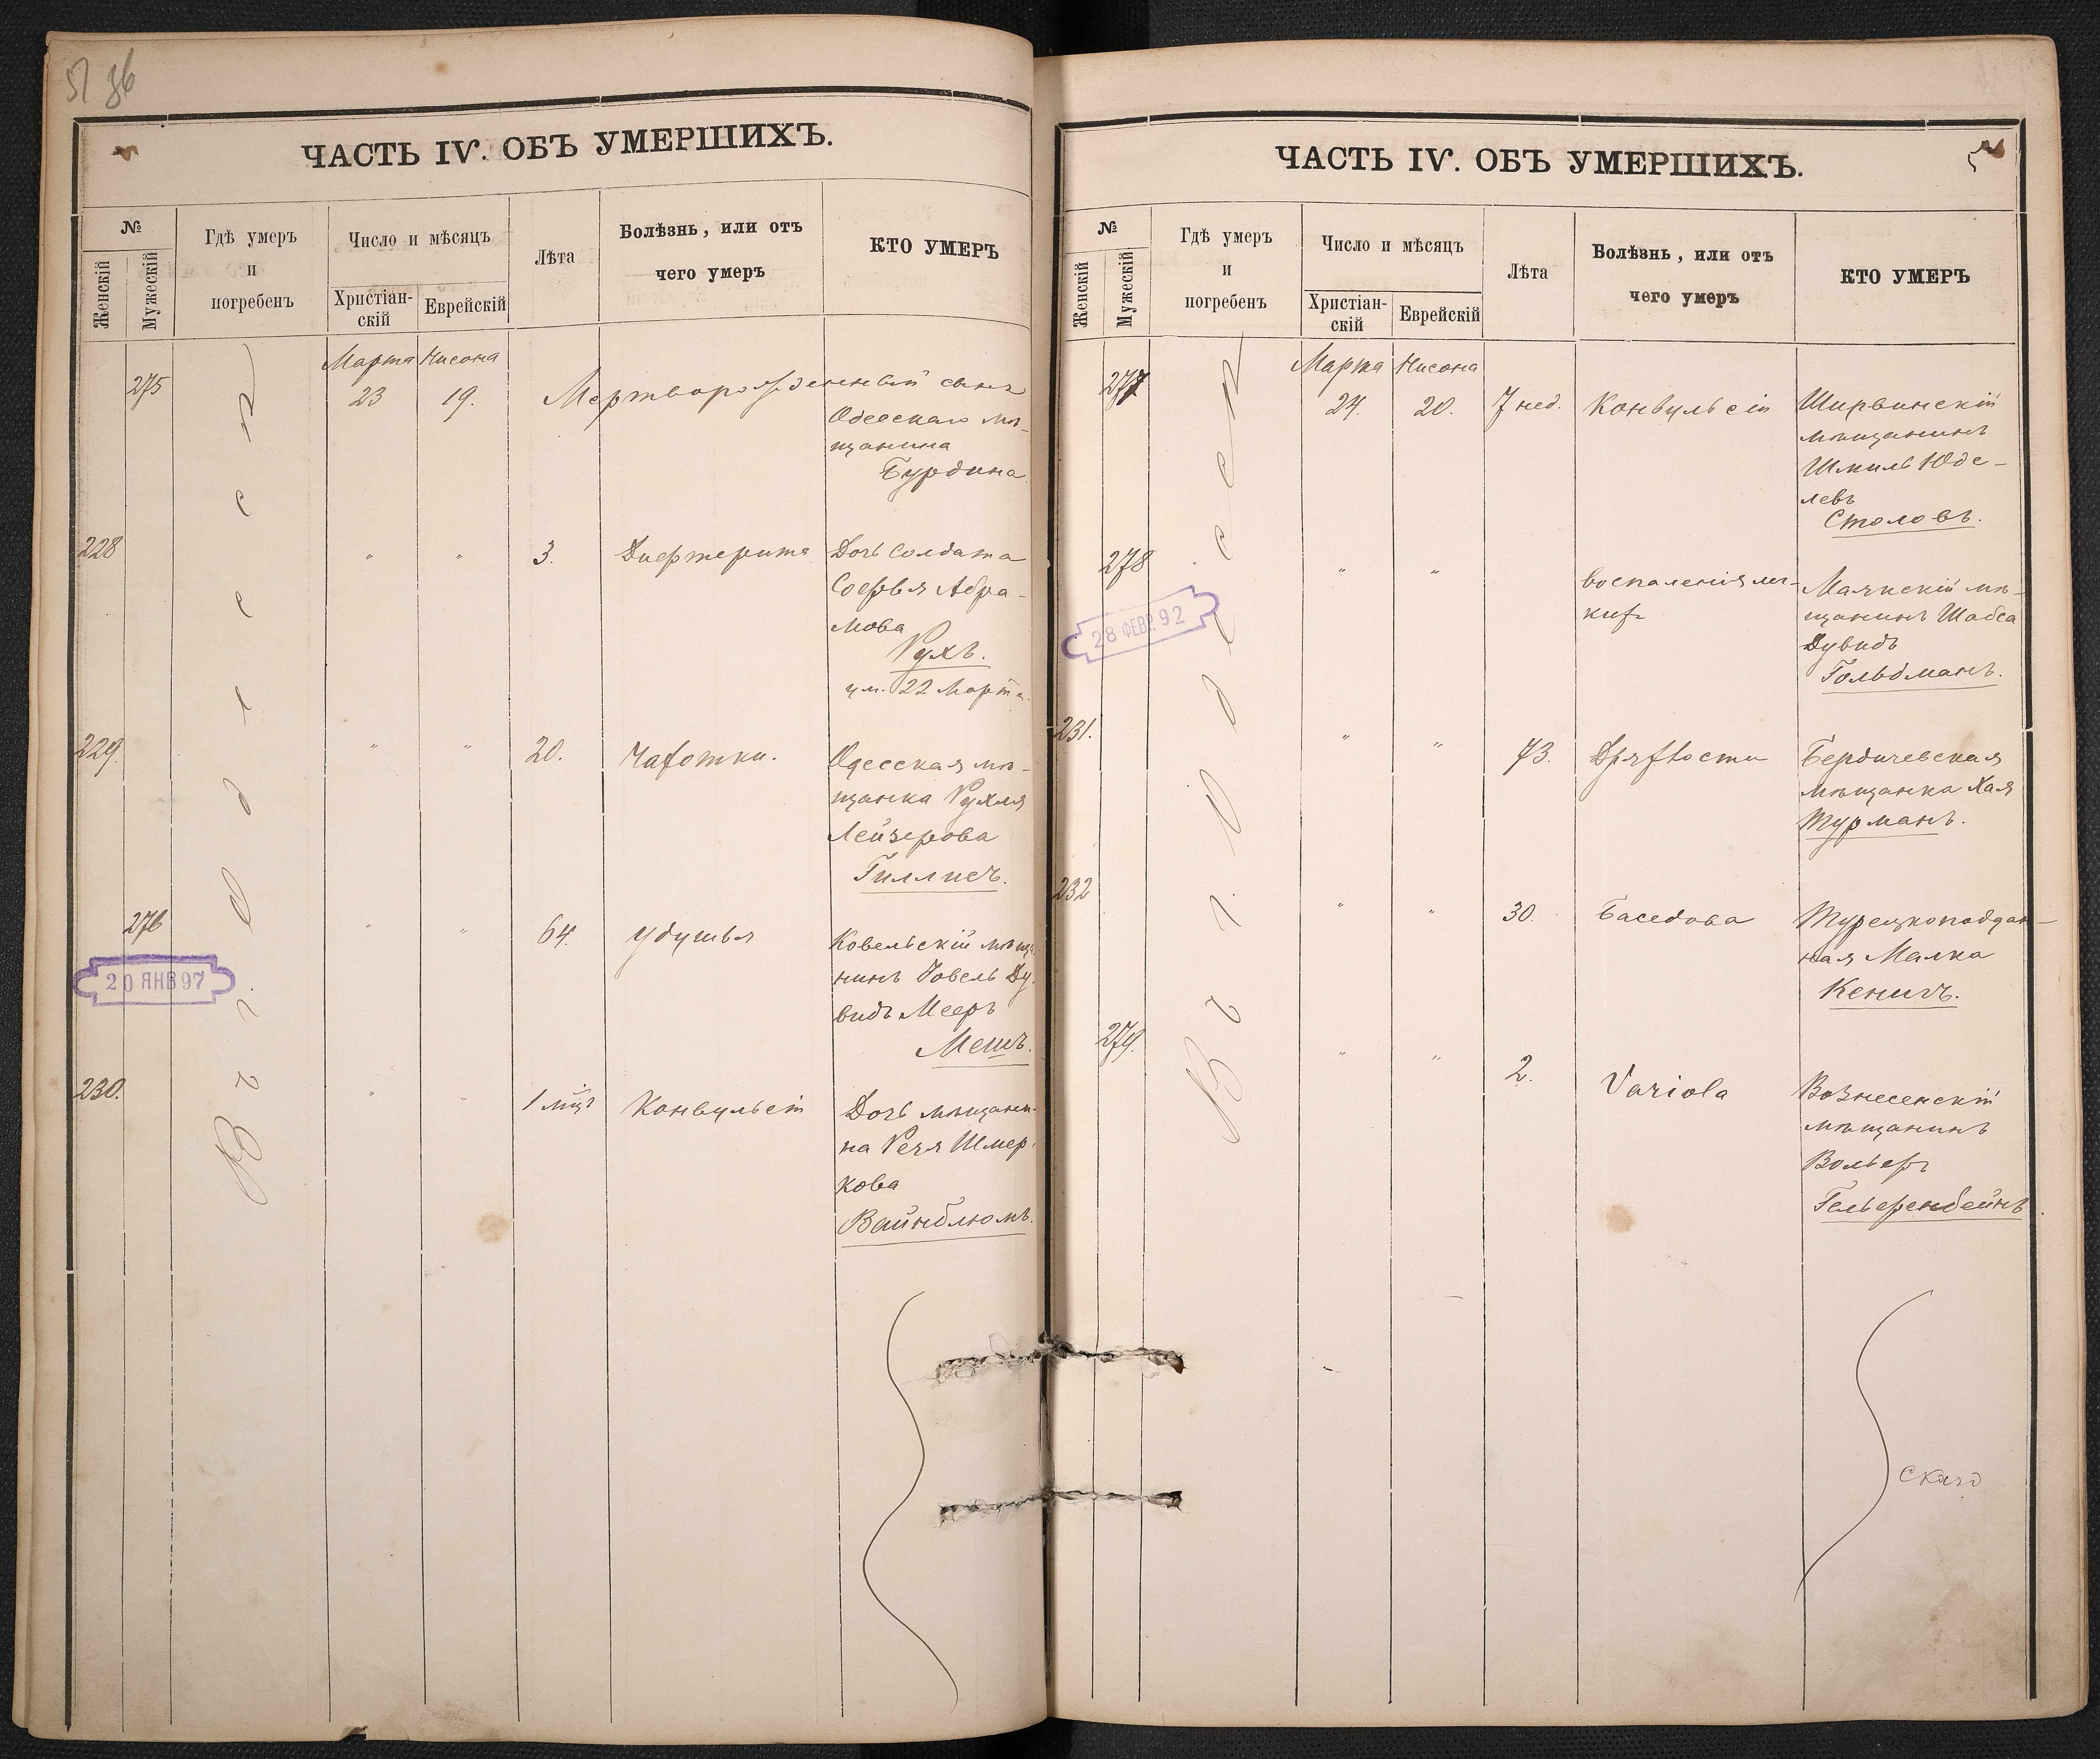 51 36
ЧАСТЬ IV. ОБЪ УМЕРШИХЪ.
№
Женскій
Мужескій
Гдѣ умеръ
и
погребенъ
Число и мѣсяцъ
Христіан-
скій
Еврейскій
Лѣта
Болѣзнь, или отъ
чего умеръ
КТО УМЕРЪ
Въ Одессѣ
Марта Нисона
275 23 19. Мертворожденный сынъ
Одесскаго мѣ-
щанина
Бурдина
228 " " 3. Дифтерита Дочь Солдата
Софья Абра-
мова
Рухъ.
ум. 22 Марта.
229. " " 20. Чахотки. Одесская мѣ-
щанка Рухля
Лейзерова
Гиллисъ.
276 " " 64. Удушья Ковельскій мѣща
нинъ Іовель Ду-
видъ Мееръ
Мешъ.
20 ЯНВ 97
230. " " 1 мѣц Конвульсіи Дочь мѣщани-
на Рейя Шмер-
кова
Вайнблюмъ.
ЧАСТЬ IV. ОБЪ УМЕРШИХЪ.
№
Женскій
Мужескій
Гдѣ умеръ
и
погребенъ
Число и мѣсяцъ
Христіан-
скій
Еврейскій
Лѣта
Болѣзнь, или отъ
чего умеръ
КТО УМЕРЪ
Въ Одессѣ
Марта Нисона
277 24. 20. 7 нед. Конвульсіи Ширвинскій
мѣщанинъ
Шмиль Юде-
левъ
Столовъ.
278 " " воспаленія лег- Маякскій мѣ-
кихъ щанинъ Шабса
Дувидъ
Гольдманъ.
28 ФЕВР. 92
231. " " 73. Дряхлости Бердичевская
мѣщанка Хая
Турманъ.
232 " " 30. Баседова Турецкоподдан-
ная Малка
Кенигъ.
279. " " 2. Variola Вознесенскій
мѣщанинъ
Вольфъ
Гельфенбейнъ
скаго